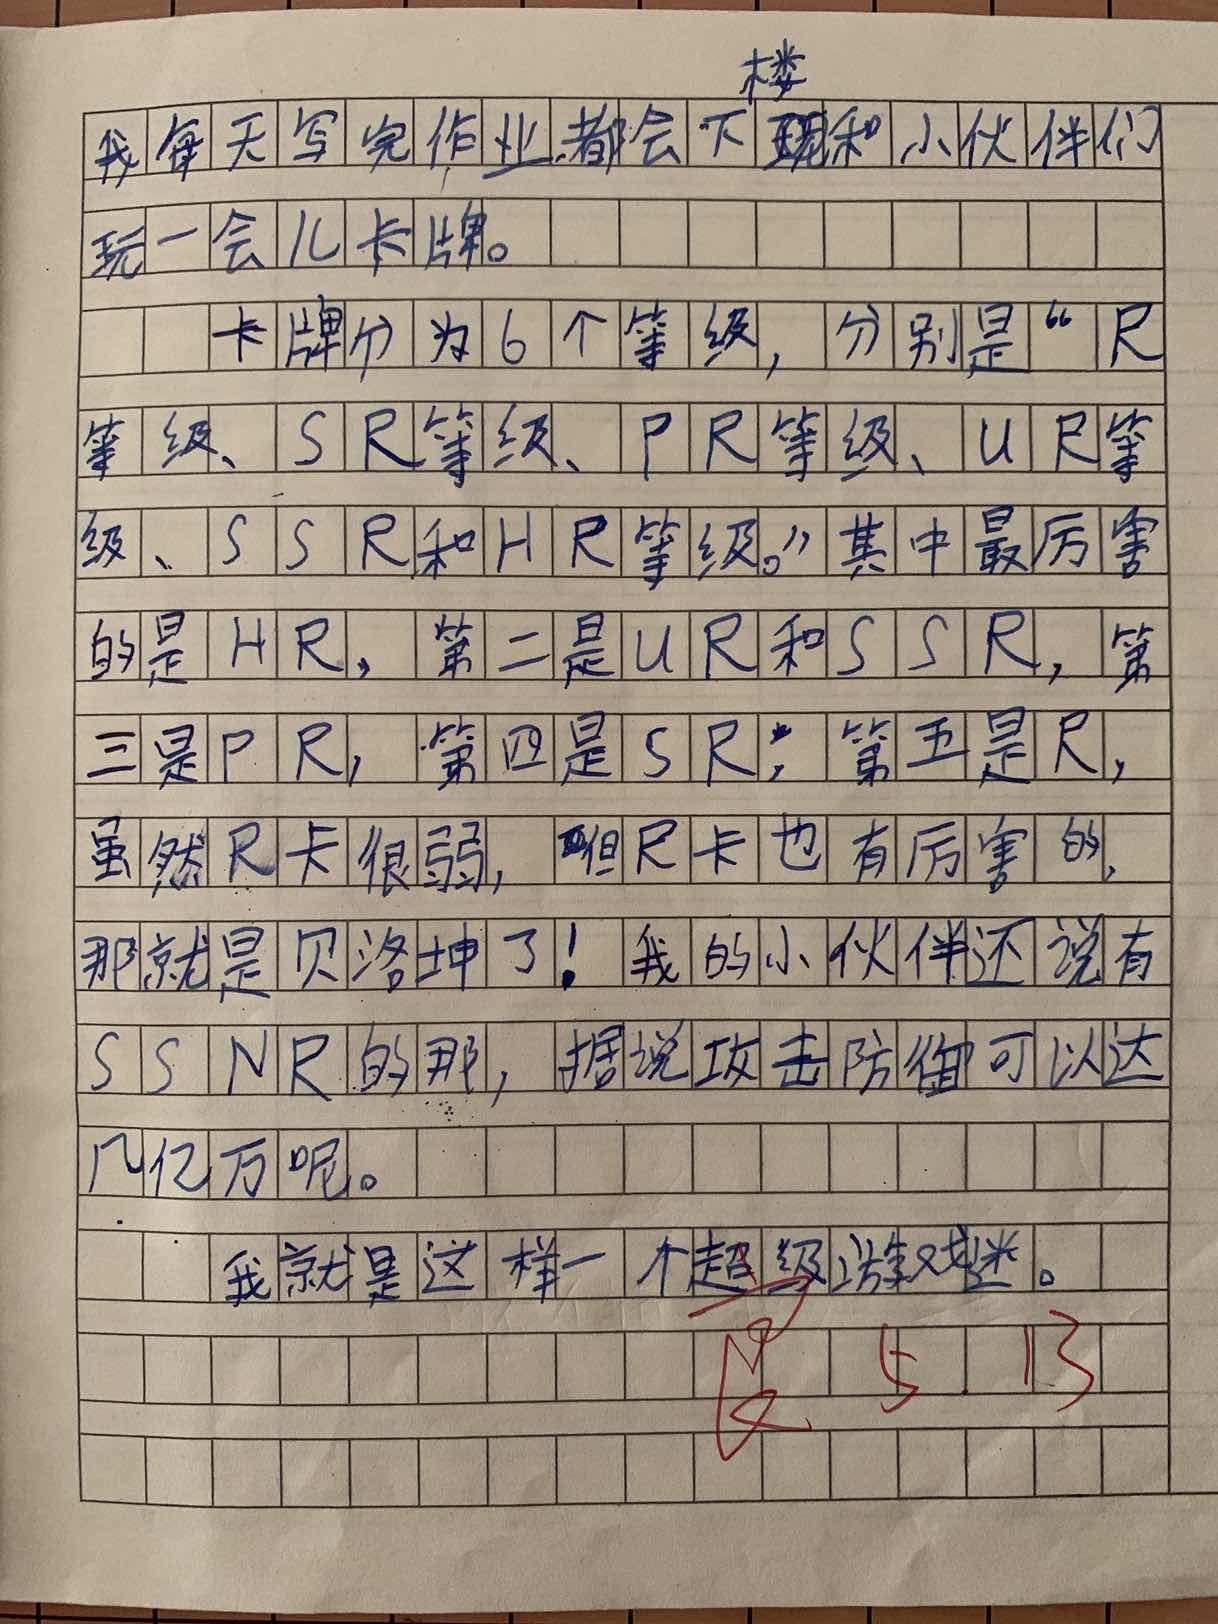 我每天写完作业都会下楼和小伙伴们
玩一会儿卡牌。
卡牌分为6个等级，分别是“R
等级、SR等级、PR等级、UR等
级、SSR和HR等级。”其中最厉害
的是HR，第二是UR和SSR，第
三是PR，第四是SR，第五是R，
虽然R卡很弱，但R卡也有厉害的，
那就是贝洛坤了！我的小伙伴还说有
SSNR的那，据说攻击防御可以达
几亿万呢。
我就是这样一个超级游戏迷。
5 13